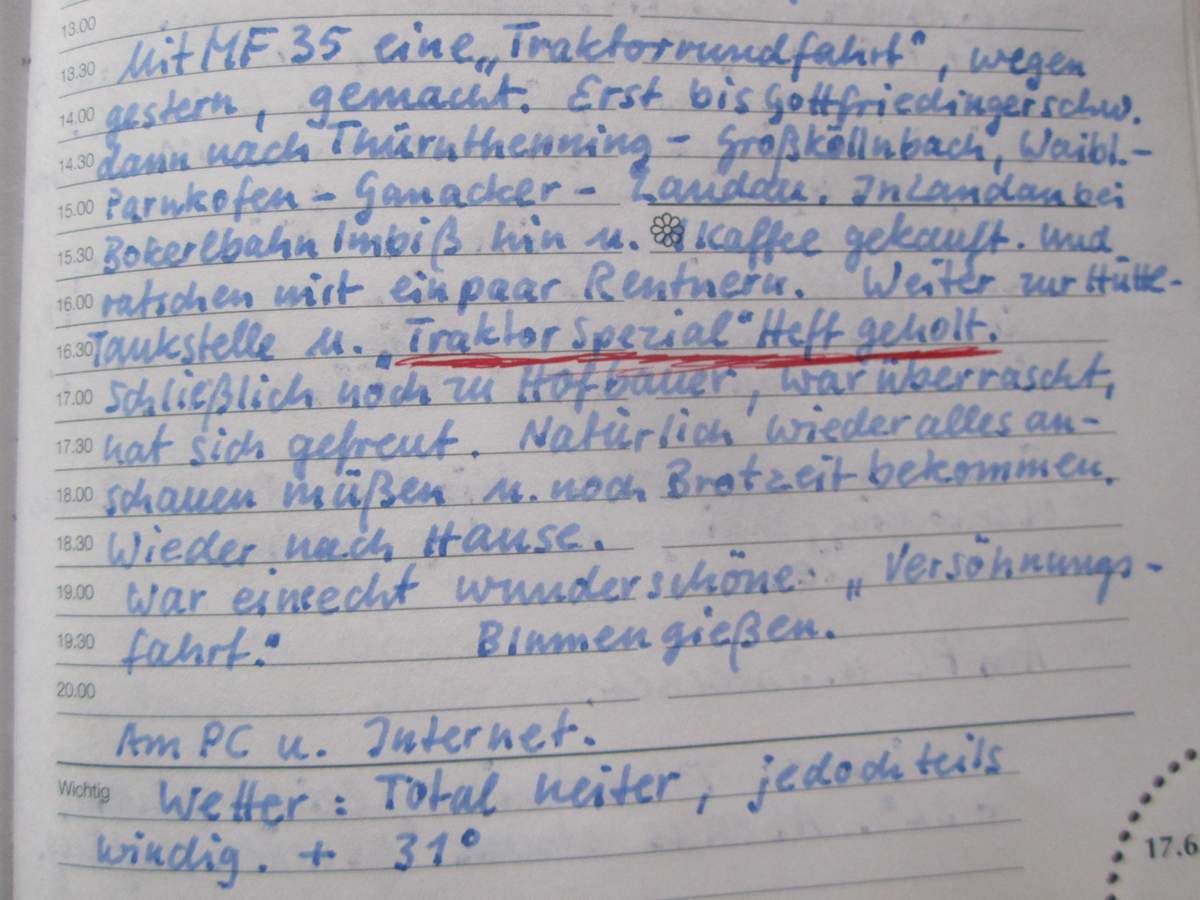 13.00
13.30 Mit MF 35 eine „Traktorrundfahrt", wegen
14.00 gestern, gemacht. Erst bis Gottfriedingerschw.
14.30 dann nach Thürnthenning - Großköllnbach, Waibl.-
15.00 Parnkofen - Ganacker - Landau. In Landau bei
15.30 Bokerlbahn Imbiß hin u. 1 Kaffee gekauft. und
16.00 ratschen mit ein paar Rentnern. Weiter zur Hüttl-
16.30 Tankstelle u. „Traktor Spezial" Heft geholt.
17.00 Schließlich noch zu Hofbauer, war überrascht,
17.30 hat sich gefreut. Natürlich wieder alles an-
18.00 schauen müßen u. noch Brotzeit bekommen.
18.30 Wieder nach Hause.
19.00 War ein echt wunderschöne „Versöhnungs-
19.30 fahrt." Blumen gießen.
20.00
Am PC u. Internet.
Wichtig Wetter: Total heiter, jedoch teils
windig. + 31°
17.6